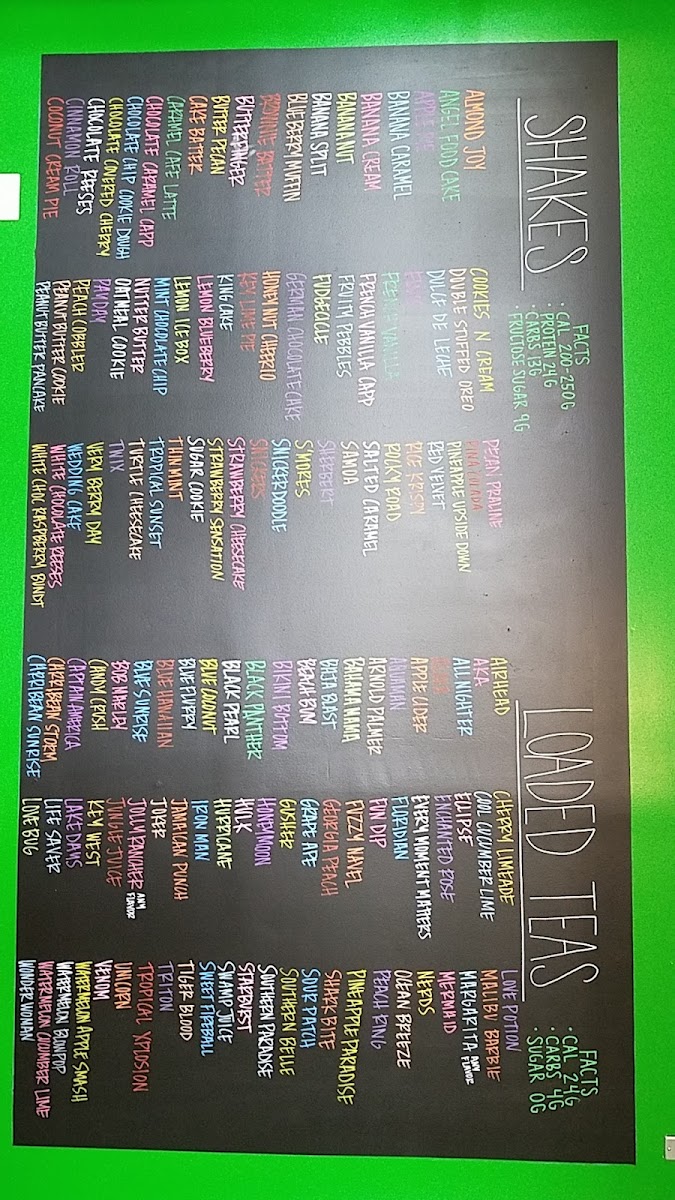 SHAKES
FACTS
· CAL 200-250G
· PROTEIN 24G
· CARBS 13G
· FRUCTOSE SUGAR 9G
ALMOND JOY
ANGEL FOOD CAKE
APPLE PIE
BANANA CARAMEL
BANANA CREAM
BANANA NUT
BANANA SPLIT
BLUEBERRY MUFFIN
BROWNIE BATTER
BUTTERFINGER
BUTTER PECAN
CAKE BATTER
CARAMEL CAFE LATTE
CHOCOLATE CARAMEL CAPP
CHOCOLATE CHIP COOKIE DOUGH
CHOCOLATE COVERED CHERRY
CHOCOLATE REESES
CINNAMON ROLL
COCONUT CREAM PIE
COOKIES N CREAM
DOUBLE STUFFED OREO
DULCE DE LECHE
FRENCH VANILLA
FRENCH VANILLA CAPP
FRUITY PEBBLES
FUDGECICLE
GERMAN CHOCOLATE CAKE
HONEY NUT CHEERIO
KEY LIME PIE
KING CAKE
LEMON BLUEBERRY
LEMON ICE BOX
MINT CHOCOLATE CHIP
NUTTER BUTTER
OATMEAL COOKIE
PAYDAY
PEACH COBBLER
PEANUT BUTTER COOKIE
PEANUT BUTTER PANCAKE
PECAN PRALINE
PINA COLADA
PINEAPPLE UPSIDE DOWN
RED VELVET
RICE KRISPY
ROCKY ROAD
SALTED CARAMEL
SAMOA
SHERBERT
S'MORES
SNICKERDOODLE
SNICKERS
STRAWBERRY CHEESECAKE
STRAWBERRY SENSATION
SUGAR COOKIE
THIN MINT
TROPICAL SUNSET
TURTLE CHEESECAKE
TWIX
VERY BERRY DAY
WEDDING CAKE
WHITE CHOCOLATE REESES
WHITE CHOC RASPBERRY BUNDT
LOADED TEAS
FACTS
· CAL 24G
· CARBS 4G
· SUGAR 0G
AIRHEAD
AKA
ALL NIGHTER
APPLE CIDER
AQUAMAN
ARNOLD PALMER
BAHAMA MAMA
BAJA BLAST
BEACH BUM
BIKINI BOTTOM
BLACK PANTHER
BLACK PEARL
BLUE COCONUT
BLUE FLURRY
BLUE HAWAIIAN
BLUE SUNRISE
BOB MARLEY
CANDY CRUSH
CAPTAIN AMERICA
CARIBBEAN STORM
CARIBBEAN SUNRISE
CHERRY LIMEADE
COOL CUCUMBER LIME
ECLIPSE
ENCHANTED ROSE
EVERY MOMENT MATTERS
FLORIDIAN
FUN DIP
FUZZY NAVEL
GEORGIA PEACH
GRAPE APE
GUSHER
HONEYMOON
HULK
HURRICANE
IRON MAN
JAMAICAN PUNCH
JOKER
JOLLY RANCHER ANY FLAVOR
JUNGLE JUICE
KEY WEST
LAKE DAYS
LIFE SAVER
LOVE BUG
LOVE POTION
MALIBU BARBIE
MARGARITA ANY FLAVOR
MERMAID
NERDS
OCEAN BREEZE
PEACH RING
PINEAPPLE PARADISE
SHARK BITE
SOUR PATCH
SOUTHERN BELLE
SOUTHERN PARADISE
STARBURST
SWAMP JUICE
SWEET FIREBALL
TIGER BLOOD
TRITON
TROPICAL XPLOSION
UNICORN
VENOM
WATERMELON APPLE SMASH
WATERMELON BLOWPOP
WATERMELON CUCUMBER LIME
WONDER WOMAN